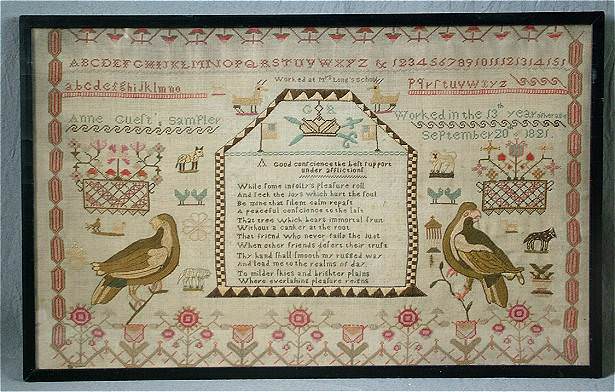 ABCDEFGHIJKLMNOPQRSTUVWXYZ & 123456789101112131415
Worked at Mrs Long's school
abcdefghijklmno
pqrstuvwxyz
Anne Guest's Sampler
G R
Worked in the 13th year of her age
September 20 1821
A Good conscience the best support
under afflictions
While some in folly's pleasure roll
And seek the joys which hurt the soul
Be mine that silent calm repast
A peaceful conscience to the last
That tree which bears immortal fruit
Without a canker at the root
That friend who never fails the just
When other friends desert their trust
Thy hand shall smooth my rugged way
And lead me to the realms of day
To milder skies and brighter plains
Where everlasting pleasure reigns